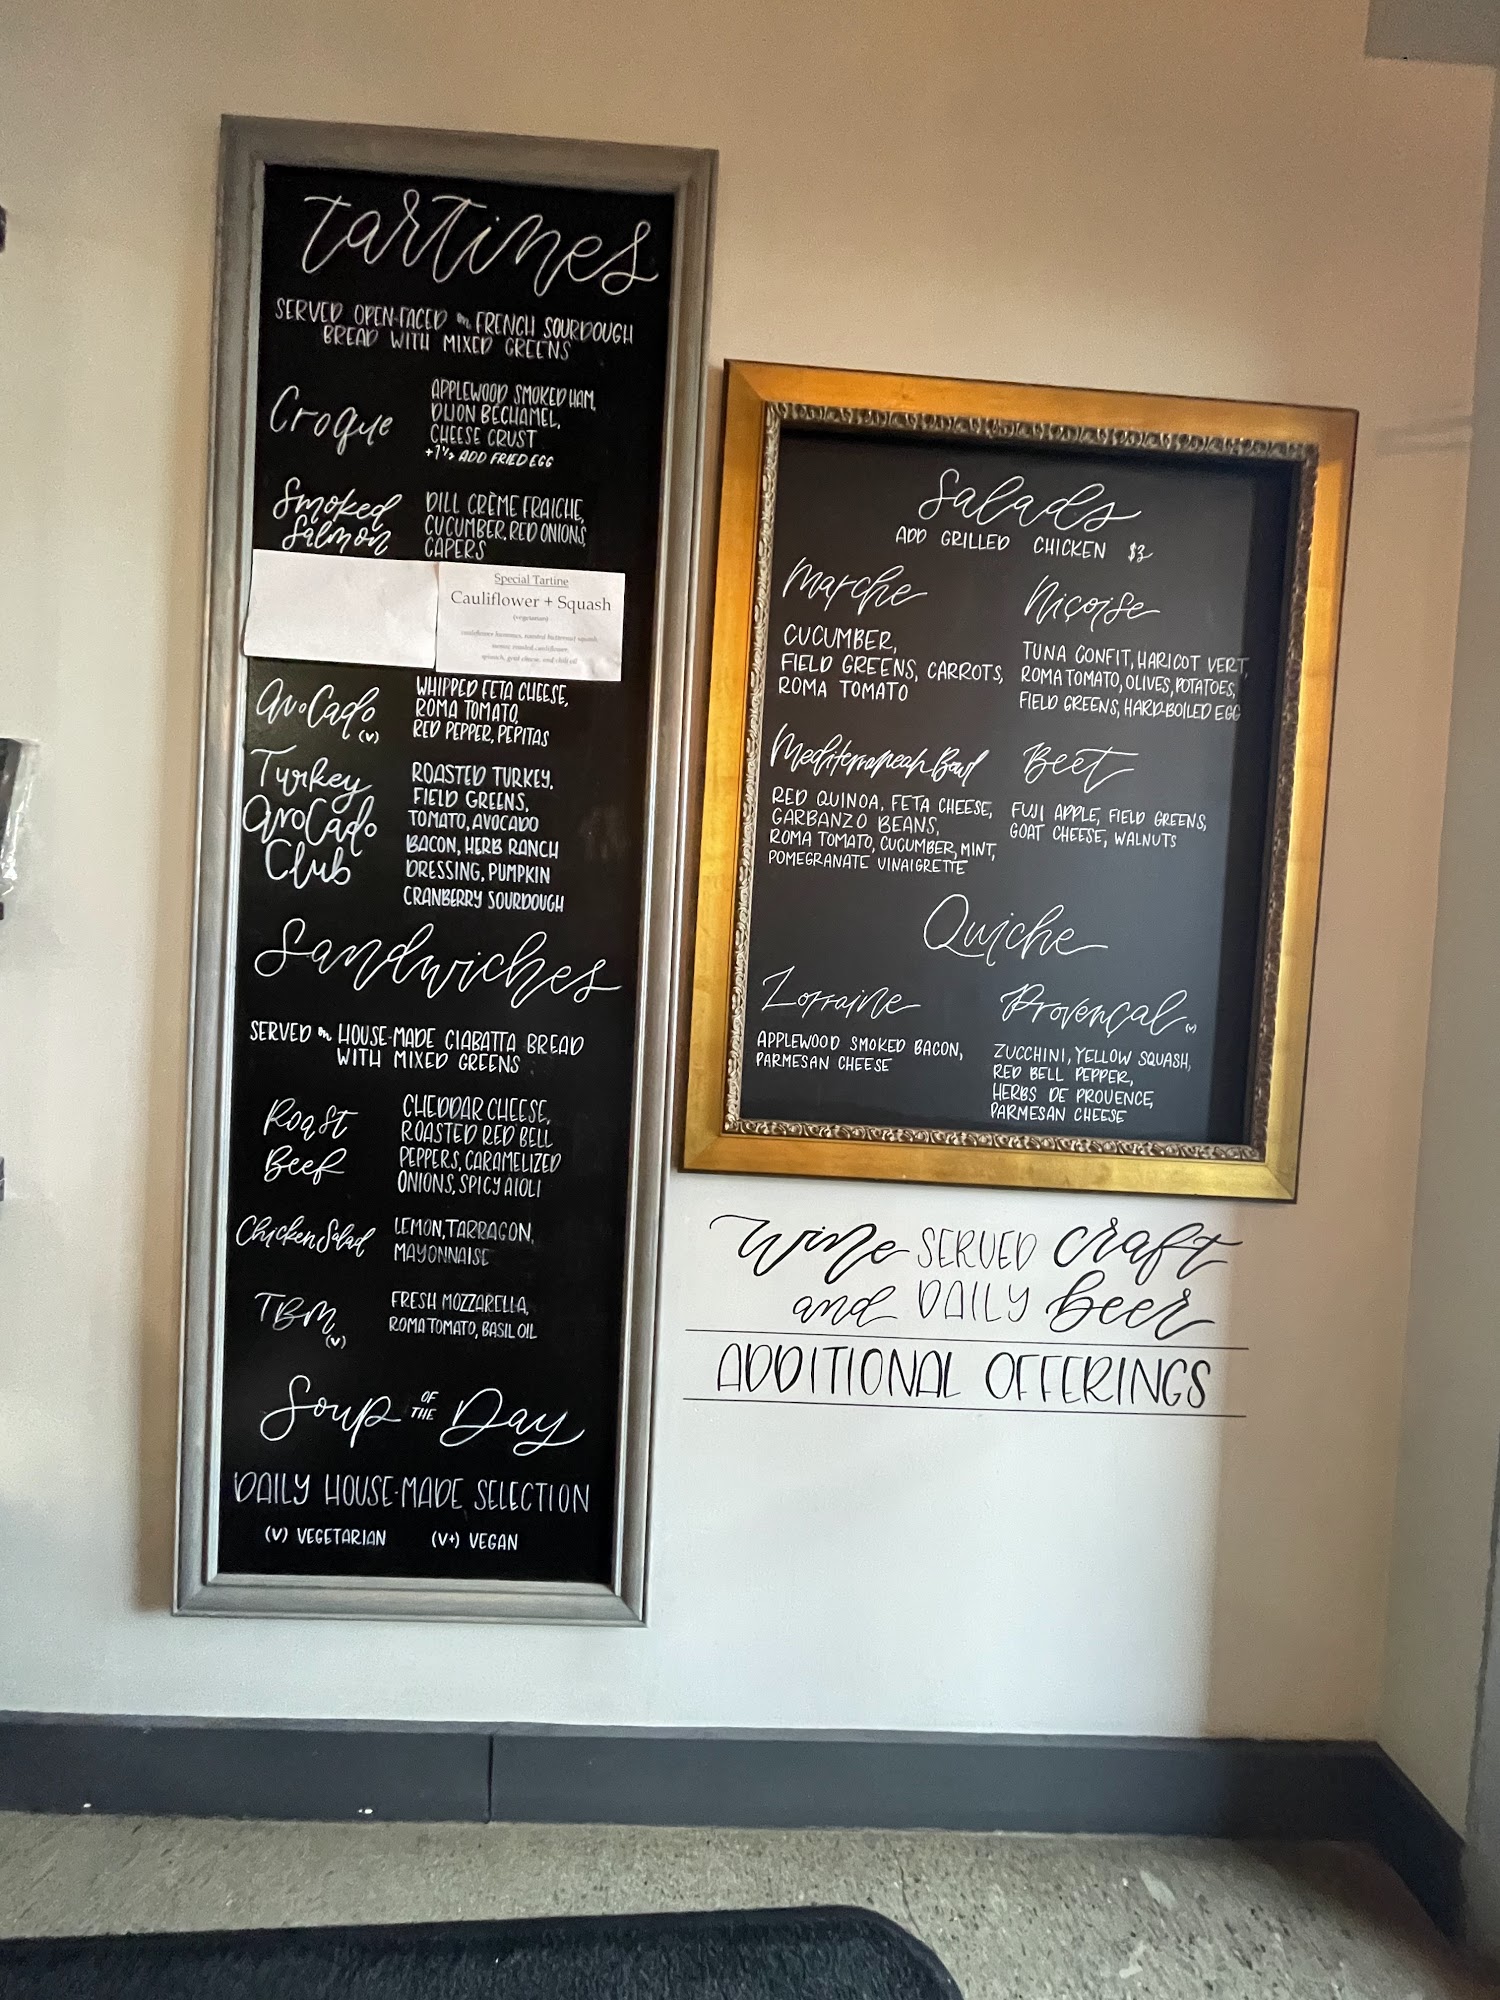 tartines
SERVED OPEN-FACED on FRENCH SOURDOUGH
BREAD WITH MIXED GREENS
Croque
APPLEWOOD SMOKED HAM,
DIJON BÉCHAMEL,
CHEESE CRUST
ADD FRIED EGG
Smoked
Salmon
DILL CRÈME FRAICHE,
CUCUMBER, RED ONIONS,
CAPERS
Special Tartine
Cauliflower + Squash
(vegetarian)
cauliflower hummus, roasted butternut squash,
roasted cauliflower,
spinach, goat cheese, and chili oil
Avocado (V)
WHIPPED FETA CHEESE,
ROMA TOMATO,
RED PEPPER, PEPITAS
Turkey
Avocado
Club
ROASTED TURKEY,
FIELD GREENS,
TOMATO, AVOCADO
BACON, HERB RANCH
DRESSING, PUMPKIN
CRANBERRY SOURDOUGH
Sandwiches
SERVED on HOUSE-MADE CIABATTA BREAD
WITH MIXED GREENS
Roast
Beef
CHEDDAR CHEESE,
ROASTED RED BELL
PEPPERS, CARAMELIZED
ONIONS, SPICY AIOLI
Chicken Salad
LEMON, TARRAGON,
MAYONNAISE
TBM (V)
FRESH MOZZARELLA,
ROMA TOMATO, BASIL OIL
Soup OF THE Day
DAILY HOUSE-MADE SELECTION
(V) VEGETARIAN (V+) VEGAN
Salads
ADD GRILLED CHICKEN $3
Marche
CUCUMBER,
FIELD GREENS, CARROTS,
ROMA TOMATO
Niçoise
TUNA CONFIT, HARICOT VERT,
ROMA TOMATO, OLIVES, POTATOES,
FIELD GREENS, HARD-BOILED EGG
Mediterranean Bowl
RED QUINOA, FETA CHEESE,
GARBANZO BEANS,
ROMA TOMATO, CUCUMBER, MINT,
POMEGRANATE VINAIGRETTE
Beet
FUJI APPLE, FIELD GREENS,
GOAT CHEESE, WALNUTS
Quiche
Lorraine
APPLEWOOD SMOKED BACON,
PARMESAN CHEESE
Provençal (V)
ZUCCHINI, YELLOW SQUASH,
RED BELL PEPPER,
HERBS DE PROVENCE,
PARMESAN CHEESE
Wine SERVED Craft
and DAILY beer
ADDITIONAL OFFERINGS